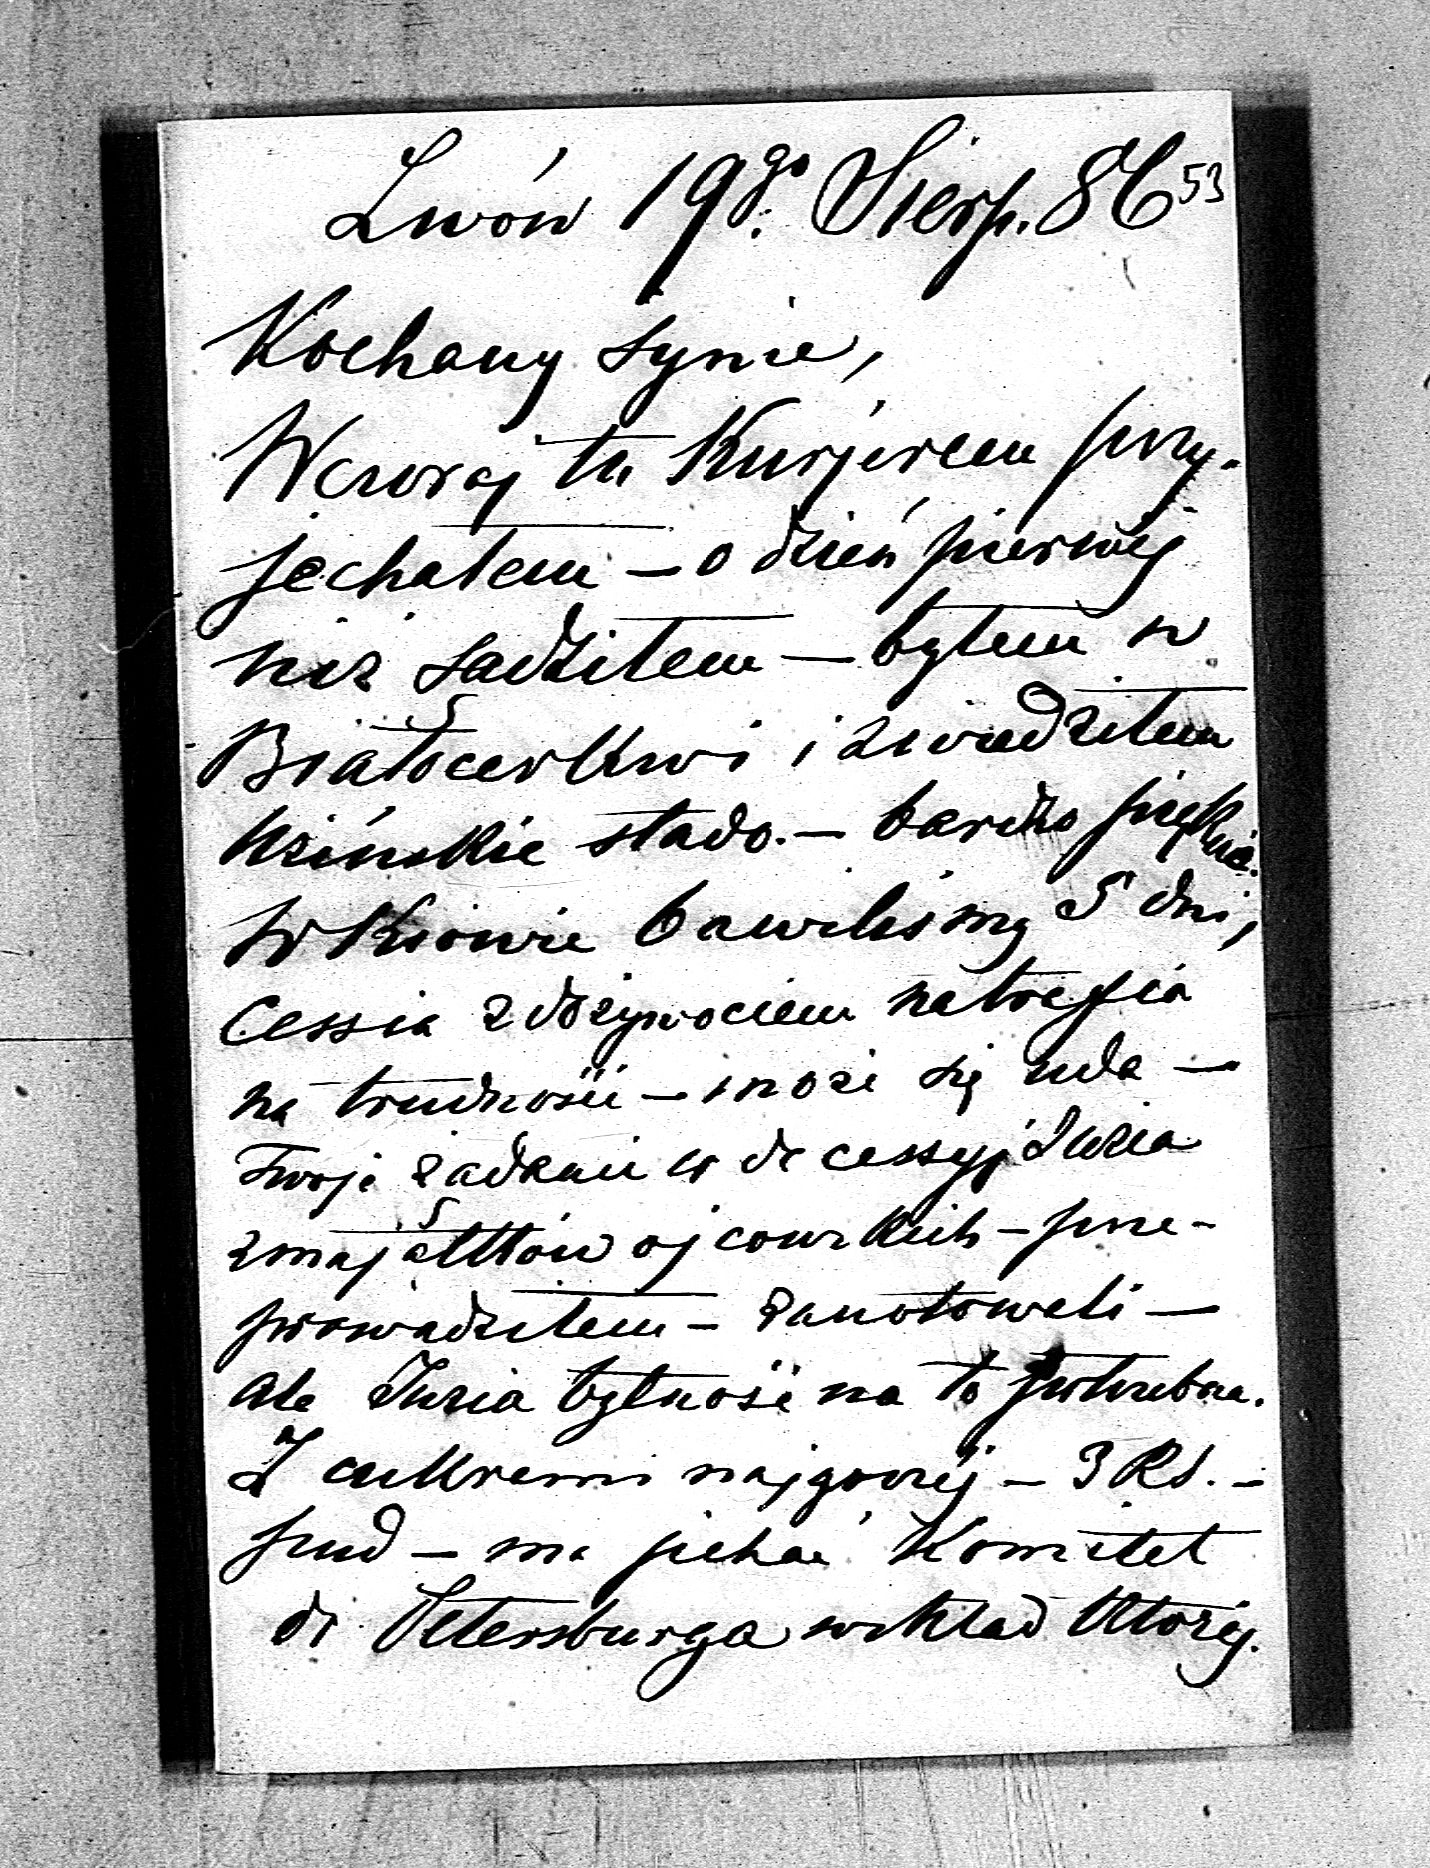 Lwów 19go Sierp. 86 53
Kochany synie,
Wczoraj tu Kurjerem przy-
jechałem – o dzień pierwéj
niż sądziłem – byłem w
Białocerkwi i zwiedziłem
Uzińskie stado. – bardzo piękne.
W Kijowie bawiliśmy 5 dni,
Cessia z dożywociem natrafia
na trudności – może się uda –
Twoje żądanie co do cessyj Józia
z majątków ojcowskich – prze-
prowadziłem – zanotowali –
ale Józia bytność na to potrzebna.
Z cukrami najgorzéj – 3 Rs. –
pud – ma jechać Komitet
do Petersburga w skład któréj.